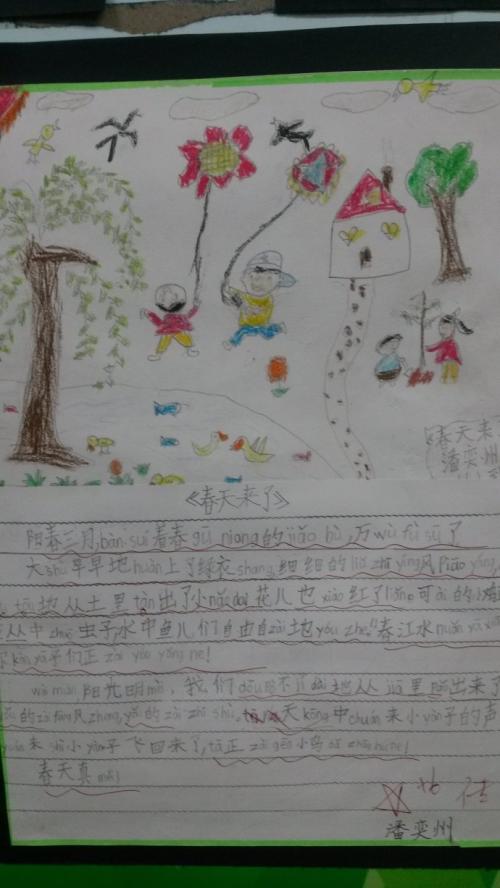 春天来
潘奕州
《春天来了》
阳春三月,bàn suí着春gū niang的jiǎo bù,万wù fù sū了
大shù早早地huàn上了绿衣shang,细细的liǔ zhī yíng风piāo yáng,
地从土里tàn出了小nǎo dai,花儿也xiào红了liǎn,可ài的小鸡
丛中zhuō虫子,水中鱼儿们自由自zài地yóu zhe。"春江水nuǎn yā
kàn yā子们正zài yóu yǒng ne!
wài miàn阳光明mèi,我们dōu pò不jí dài地从jiā里pǎo出来了
的zài fàng风zheng,有的zài zhí shù,天kōng中chuán来小yàn子的声
来shì小yàn子飞回来了,tā正zài gēn小鸟
春天真měi!
潘奕州